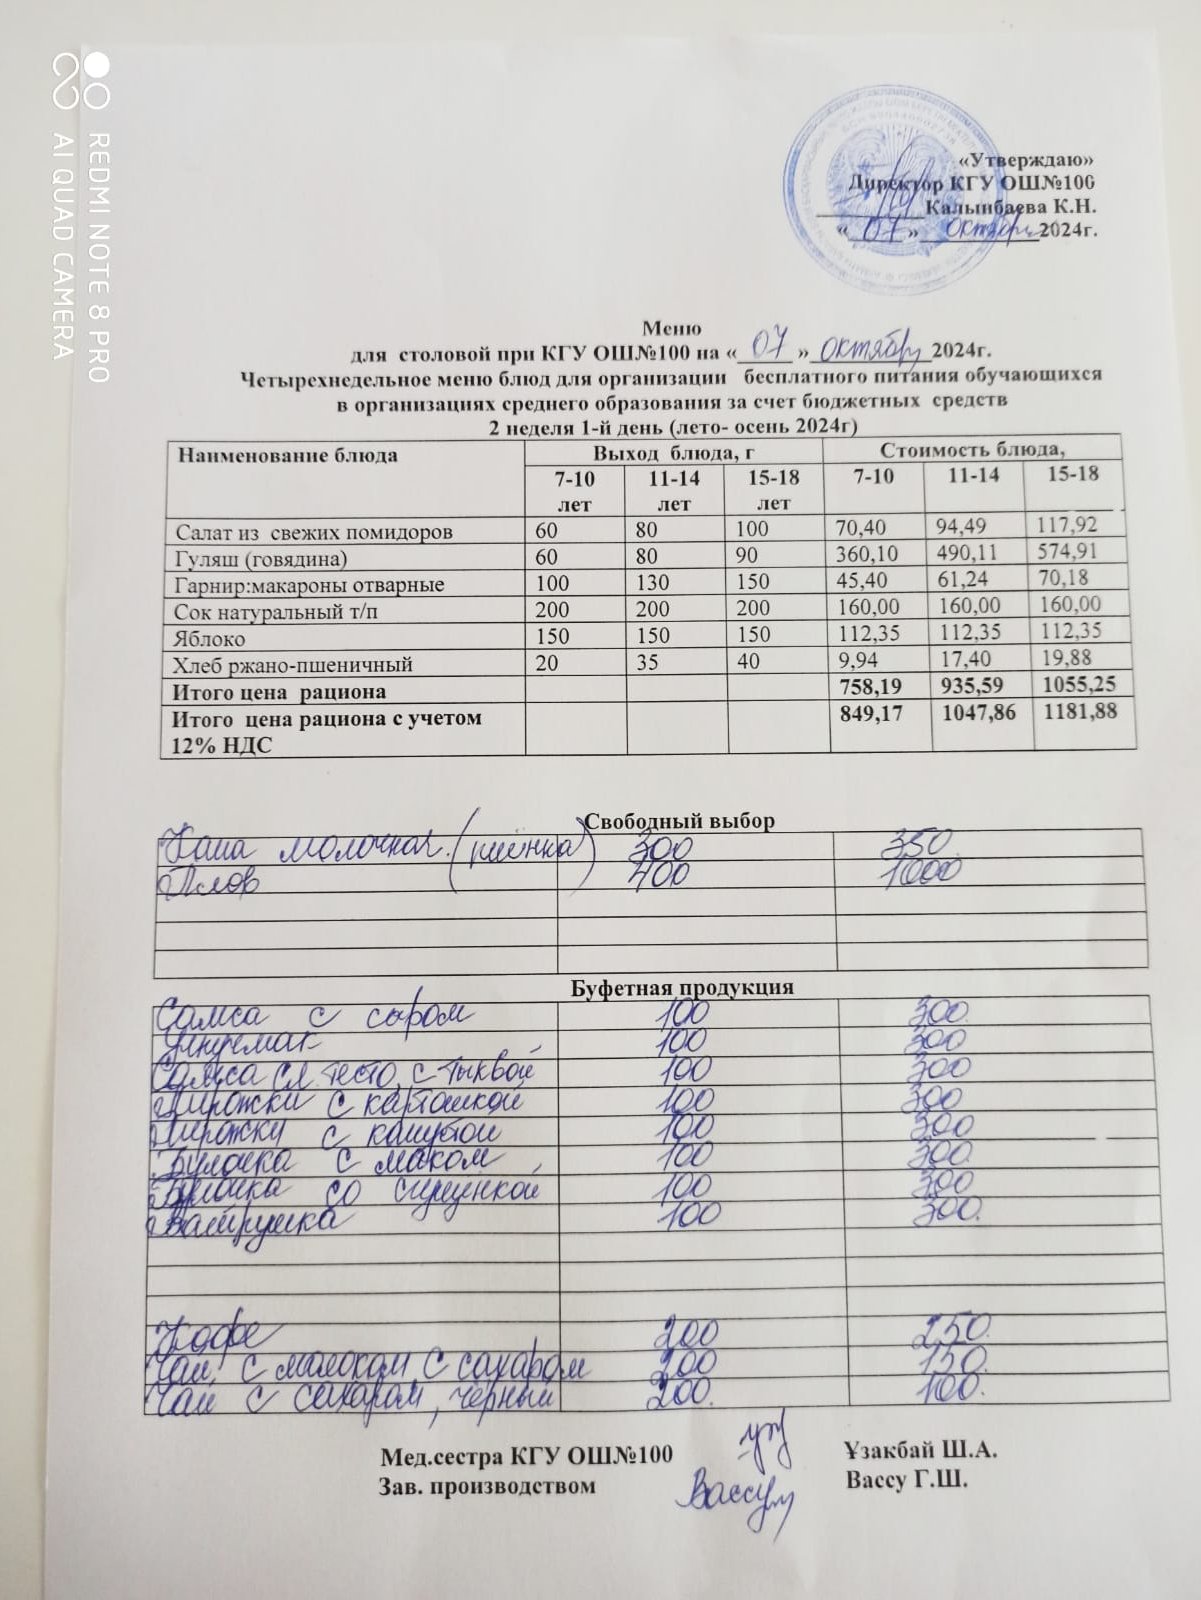 REDMI NOTE 8 PRO
AI QUAD CAMERA
«Утверждаю»
Директор КГУ ОШ№100
____________Калынбаева К.Н.
« 07 » октябрь 2024г.
Меню
для столовой при КГУ ОШ№100 на « 07 » октябрь 2024г.
Четырехнедельное меню блюд для организации бесплатного питания обучающихся
в организациях среднего образования за счет бюджетных средств
2 неделя 1-й день (лето- осень 2024г)
Наименование блюда Выход блюда, г Стоимость блюда,
7-10 лет 11-14 лет 15-18 лет 7-10 11-14 15-18
Салат из свежих помидоров 60 80 100 70,40 94,49 117,92
Гуляш (говядина) 60 80 90 360,10 490,11 574,91
Гарнир:макароны отварные 100 130 150 45,40 61,24 70,18
Сок натуральный т/п 200 200 200 160,00 160,00 160,00
Яблоко 150 150 150 112,35 112,35 112,35
Хлеб ржано-пшеничный 20 35 40 9,94 17,40 19,88
Итого цена рациона 758,19 935,59 1055,25
Итого цена рациона с учетом 849,17 1047,86 1181,88
12% НДС
Свободный выбор
Каша молочная (пшёнка) 300 350
Плов 400 1000
Буфетная продукция
Самса с сыром 100 300
100 300
Самса сл. тесто, с тыквой 100 300
Пирожки с картошкой 100 300
Пирожки с капустой 100 300
Булочка с маком 100 300
Булочка со сгущенкой 100 300
Ватрушка 100 300.
Кофе 200 250.
Чай с молоком, с сахаром 200 150.
Чай с сахаром, чёрный 200. 100.
Мед.сестра КГУ ОШ№100 Ұзакбай Ш.А.
Зав. производством Вассу Вассу Г.Ш.